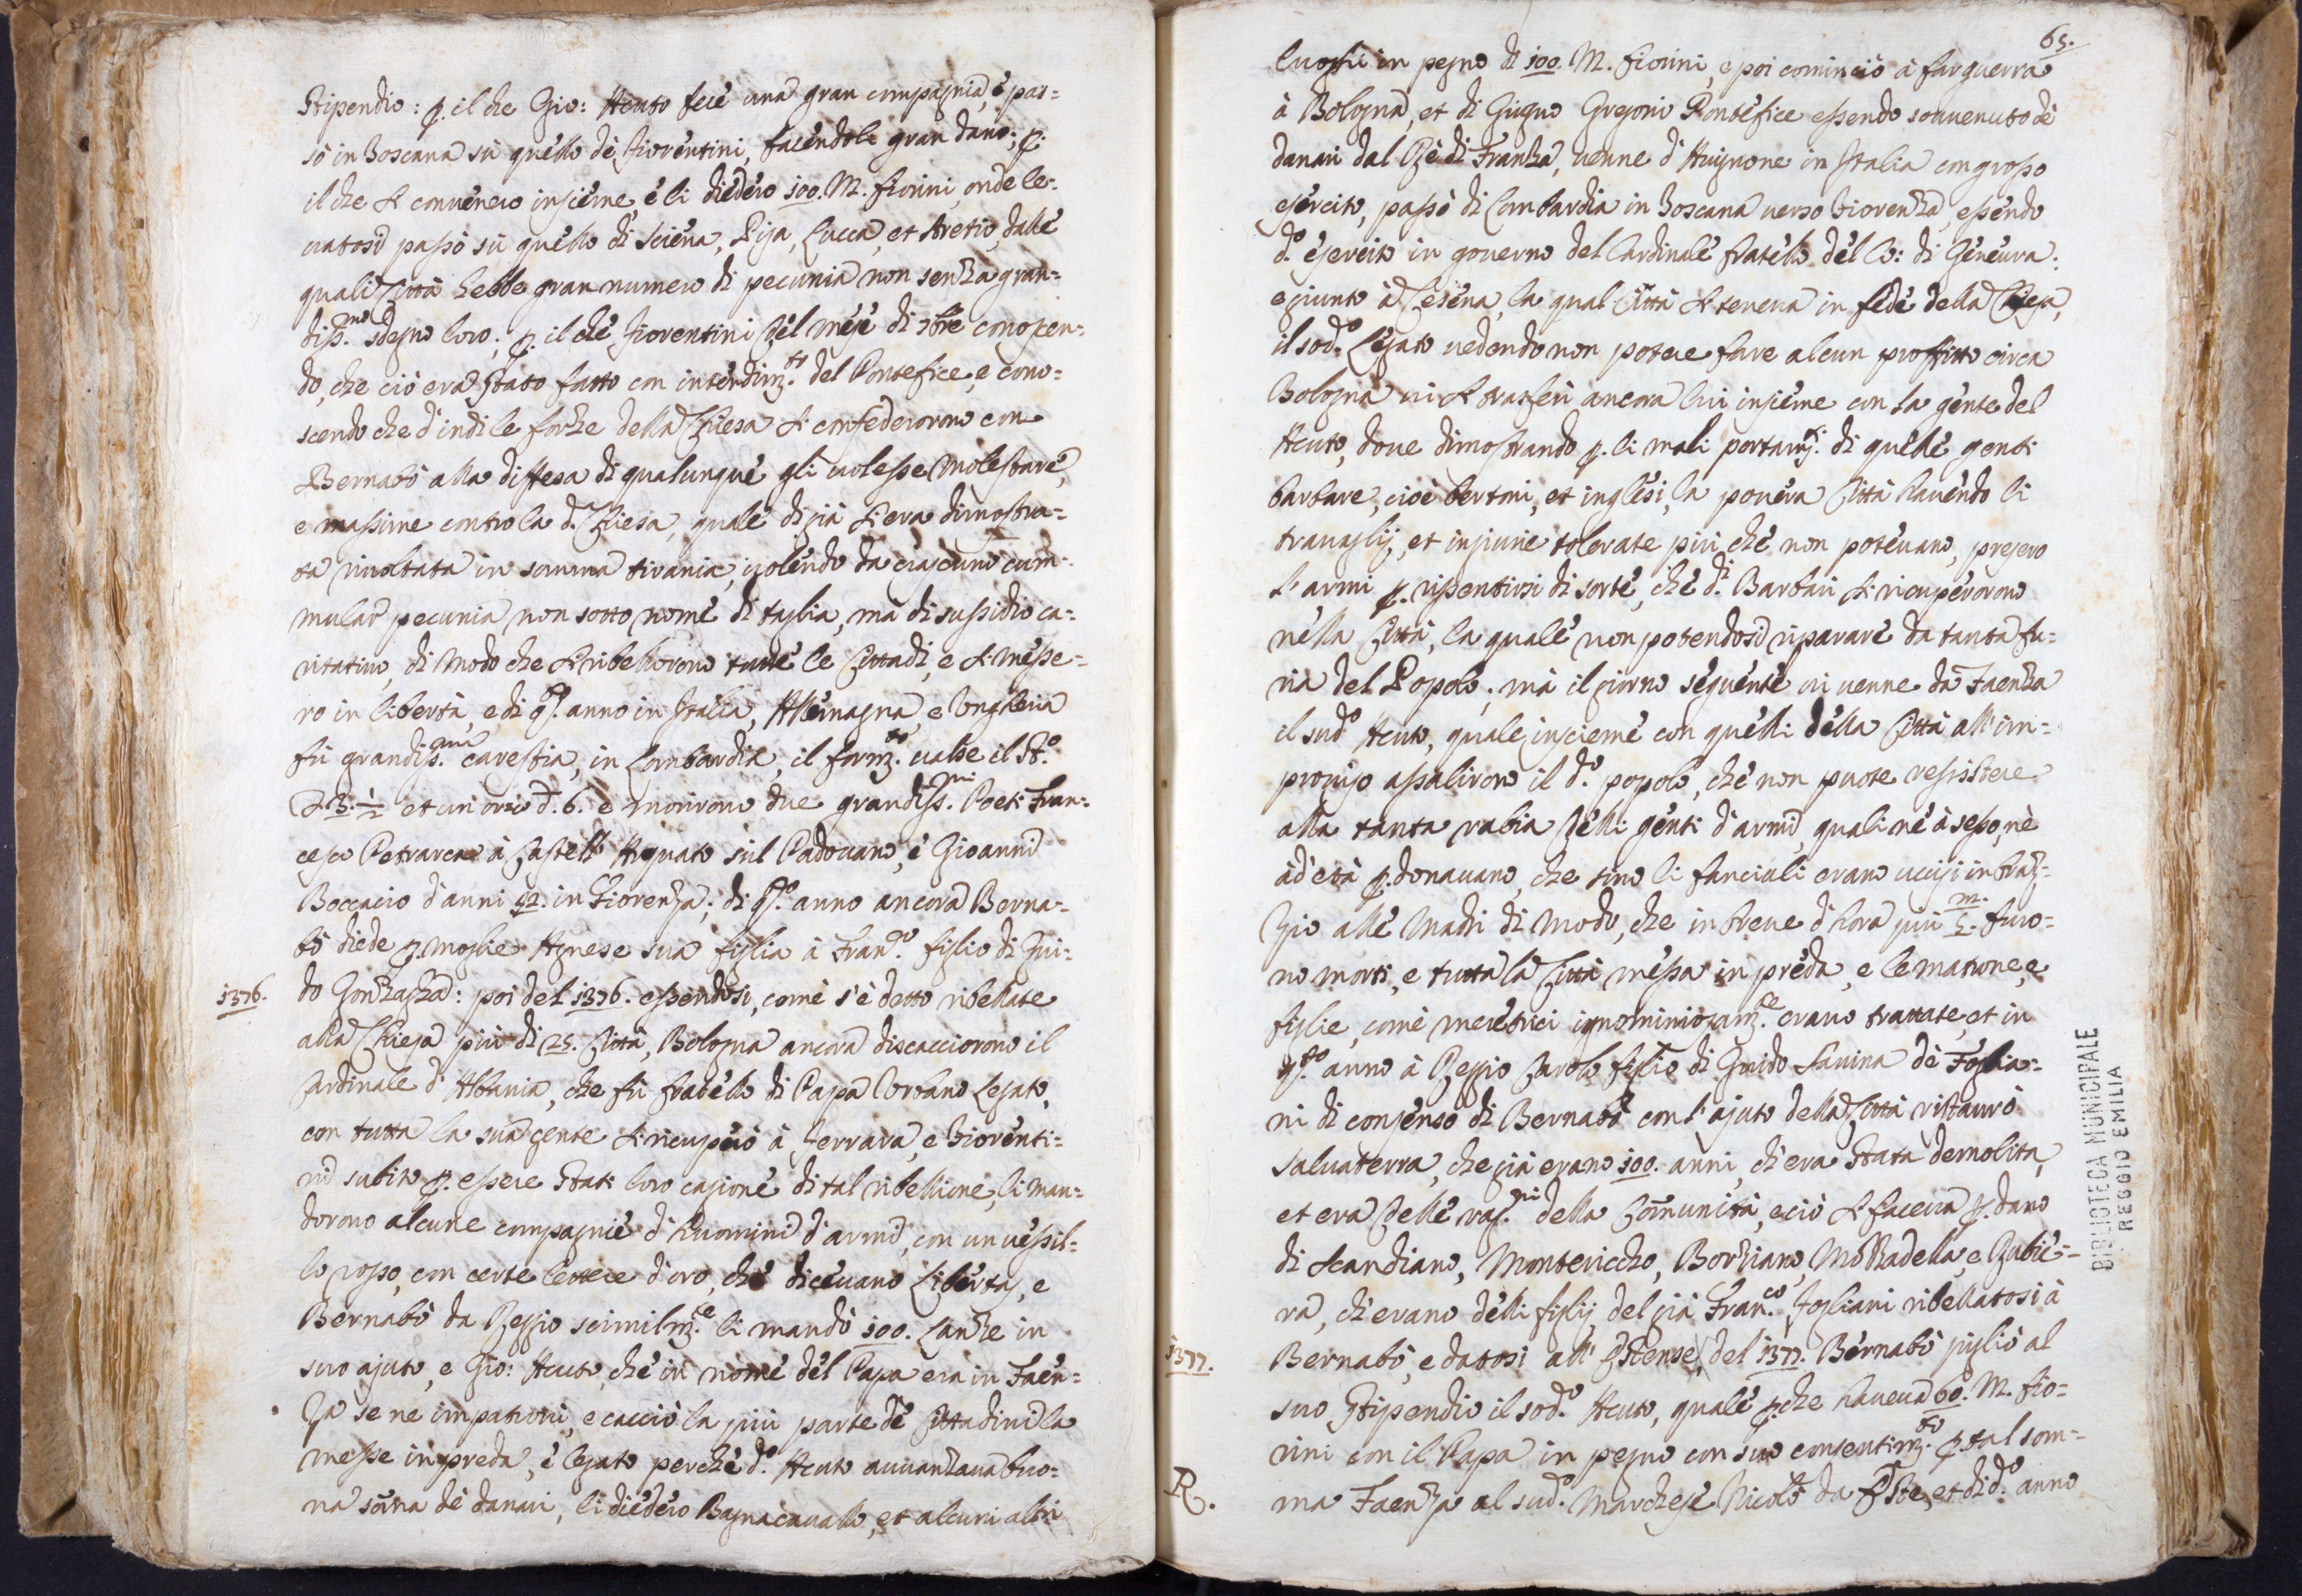 Stipendio: p. il che Gio: Acuto fece una gran compagnia, e pas=
sò in Toscana sù quello de Fiorentini, facendole gran dano; p.
il che si convenero insieme, e li diedero 100. M. fiorini, onde le=
vatosi passò sù quello di Sciena, Pisa, Lucca, et Aretio, dalle
quali Città hebbe gran numero di pecunia non senza gran=
diss.mo sdegno loro; p. il che Fiorentini del mese di 9bre conoscen=
do, che ciò era stato fatto con intendim.to del Pontefice, e cono=
scendo che d'indi le forze della Chiesa si confederorono con
Bernabò alla diffesa di qualunque gli volesse molestare,
e massime contro la d. Chiesa, quale di già si era dimostra=
ta rivoltata in somma tirania, volendo da ciascuno cum=
mular pecunia non sotto nome di taglia, ma di sussidio ca=
ritativo, di modo che si ribellorono tutte le Cittadi, e si messe=
ro in libertà, e di q.to anno in Italia, Allemagna e Ongheria
fù grandiss.ma carestia, in Lombardia, il form.to valse il St.o
et un orzo d. 6. e morirono due grandiss.mi Poeti Fran=
cesco Petrarca à Castello Arquato sul Padovano, e Gioanni
Boccacio d'anni 92. in Fiorenza; di q.to anno ancora Berna=
bò diede p. moglie Agnese sua figlia à Fran.co figlio di Gui=
1376. do Gonzaga: poi del 1376. essendosi, come s'è detto ribellate
alla Chiesa più di 25. Città, Bologna ancora discacciorono il
Cardinale d'Albania, che fù fratello di Papa Urbano Legato,
con tutta la sua gente si ricuperò à Ferrara, e Fiorenti=
ni subito p. essere stati loro cagione di tal ribellione, li man=
dorono alcune compagnie d'huomini d'armi, con un vessil=
lo rosso, con certe lettere d'oro, che dicevano Libertas, e
Bernabò da Reggio scimilm.te li mandò 100. Lanze in
suo ajuto, e Gio: Acuto, che in nome del Papa era in Faen=
za se ne impatronì, e cacciò la più parte de Cittadini la
messe in preda, e legato perche d.o Acuto avvanzava buo=
na soma de danari, li diedero Bagnacavallo, et alcuni altri
65.
luoghi in pegno di 100. M. fiorini, e poi cominciò à far guerra
à Bologna, et di Giugno Gregorio Pontefice essendo souvenuto de
danari dal Rè di Franza, venne d'Avignone in Italia con grosso
esercito, passò di Lombardia in Toscana verso Fiorenza, essendo
d.o esercito in governo del Cardinale fratello del Co: di Geneura;
e giunto à Cesena, la qual Città si teneva in fede della Chiesa,
il sod.o Legato vedendo non potere fare alcun proffitto circa
Bologna vi si trasferì ancora lui insieme con la gente del
Acuto, dove dimostrando p. li mali portam.ti di quelle genti
barbare, cioè bertoni, et inglesi, la povera Città havendo li
travaglij, et injurie tolerate più che non potevano, presero
l'armi p. risentirsi di sorte, che d.i Barbari si ricuperorono
nella Città, la quale non potendosi riparare da tanta fu=
ria del Popolo; mà il giorno seguente vi venne da Faenza
il sud.o Acuto, quale insieme con quelli della Città all'im=
proviso assalirono il d.o popolo, che non puote resistere
alla tanta rabia delli genti d'armi, quali nè à sesso, nè
ad età p.donavano, che sino li fanciuli erano uccisi in braz=
zio alle Madri di modo, che in breve d'hora più 5.m. furo=
no morti, e tutta la Città messa in preda, e le matrone, e
figlie, come meretrici ignominiosam.te erano trattate, et in
q.to anno à Reggio Carolo figlio di Guido Savina de Foglia=
ni di consenso di Bernabò con l'ajuto della Città ristaurò
Salvaterra, che già erano 100. anni, ch'era stata demolita,
et era delle rag.ni della Comunità, e ciò si faceva p. dano
di Scandiano, Montericcho, Borziano, Mozzadella, e Rubie=
ra, ch'erano delli figlij del già Fran.co Fogliani ribellatosi à
1377. Bernabò, e datosi all'Estense, del 1377. Bernabò pigliò al
suo Stipendio il sod.o Acuto, quale p.che haveva 60. M. fio=
rini con il Papa in pegno con suo consentim.to p. tal som=
R. ma Faenza al sud.o Marchese Nicolò da Este, et di d.o anno
BIBLIOTECA MUNICIPALE
REGGIO EMILIA